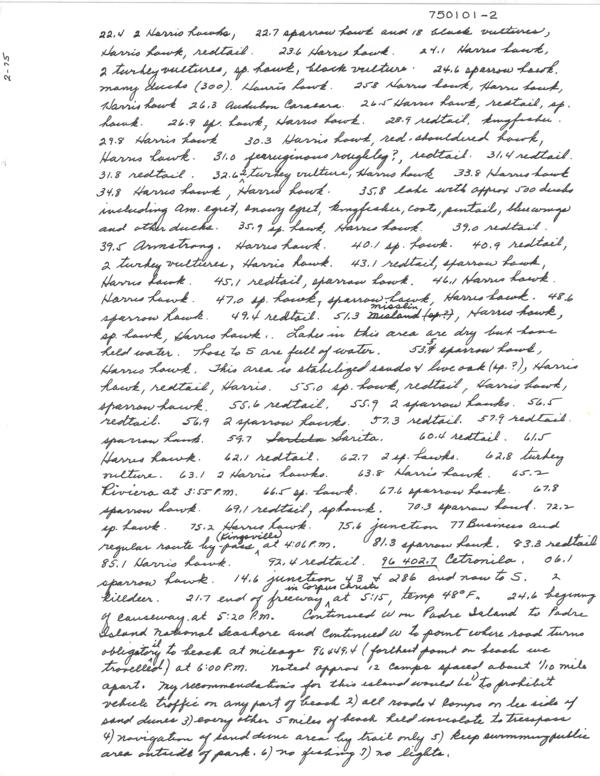 750101-2
2-75
22.4 2 Harris hawks, 22.7 sparrow hawk and 18 black vultures,
Harris hawk, redtail. 23.6 Harris hawk. 24.1 Harris hawk,
2 turkey vultures, sp. hawk, black vulture. 24.6 sparrow hawk,
many ducks (300). Harris hawk. 25.8 Harris hawk, Harris hawk,
Harris hawk 26.3 Audubon Caracara. 26.5 Harris hawk, redtail, sp.
hawk. 26.9 sp. hawk, Harris hawk. 28.9 redtail, kingfisher.
29.8 Harris hawk 30.3 Harris hawk, red-shouldered hawk,
Harris hawk. 31.0 ferruginous roughleg?, redtail. 31.4 redtail.
31.8 redtail. 32.6 2 turkey vulture, Harris hawk 33.8 Harris hawk
34.8 Harris hawk, Harris hawk. 35.8 lake with approx 500 ducks
including Am. egret, snowy egret, kingfisher, coots, pintail, bluewings
and other ducks. 35.9 sp. hawk, Harris hawk. 39.0 redtail.
39.5 Armstrong. Harris hawk. 40.1 sp. hawk. 40.9 redtail,
2 turkey vultures, Harris hawk. 43.1 redtail, sparrow hawk,
Harris hawk. 45.1 redtail, sparrow hawk. 46.1 Harris hawk.
Harris hawk. 47.0 sp. hawk, sparrow hawk, Harris hawk. 48.6
sparrow hawk. 49.4 redtail. 51.3 (sp.?), Harris hawk,
sp. hawk, Harris hawk. Lakes in this area are dry but have
held water. Those to S are full of water. 53.9 sparrow hawk,
Harris hawk. This area is stabilized sands & live oak (sp.?), Harris
hawk, redtail, Harris. 55.0 sp. hawk, redtail, Harris hawk,
sparrow hawk. 55.6 redtail. 55.9 2 sparrow hawks. 56.5
redtail. 56.9 2 sparrow hawks. 57.3 redtail. 57.9 redtail.
sparrow hawk. 59.7 Sarita. 60.4 redtail. 61.5
Harris hawk. 62.1 redtail. 62.7 2 sp. hawks. 62.8 turkey
vulture. 63.1 2 Harris hawks. 63.8 Harris hawk. 65.2
Riviera at 3:55 P.M. 66.5 sp. hawk. 67.6 sparrow hawk. 67.8
sparrow hawk. 69.1 redtail, sp hawk. 70.3 sparrow hawk. 72.2
sp. hawk. 75.2 Harris hawk. 75.6 junction 77 Business and
regular route by-pass (Kingsville) at 4:06 P.M. 81.3 sparrow hawk. 83.3 redtail
85.1 Harris hawk. 92.4 redtail. 96 402.7 Cetronila. 06.1
sparrow hawk. 14.6 junction 43 & 286 and now to S. 2
killdeer. 21.7 end of freeway in Corpus Christi at 5:15, temp 48° F. 24.6 beginning
of causeway at 5:20 P.M. Continued W on Padre Island to Padre
Island National Seashore and continued W to point where road turns
obligatorily to beach at mileage 96449.4 (farthest point on beach we
travelled) at 6:00 P.M. Noted approx 12 camps spaced about 1/10 mile
apart. My recommendations for this island would be 1) to prohibit
vehicle traffic on any part of beach 2) all roads & camps on lee side of
sand dunes 3) every other 5 miles of beach held inviolate to trespass
4) navigation of sand dune area by trail only 5) keep swimming public
area outside of park. 6) no fishing 7) no lights.